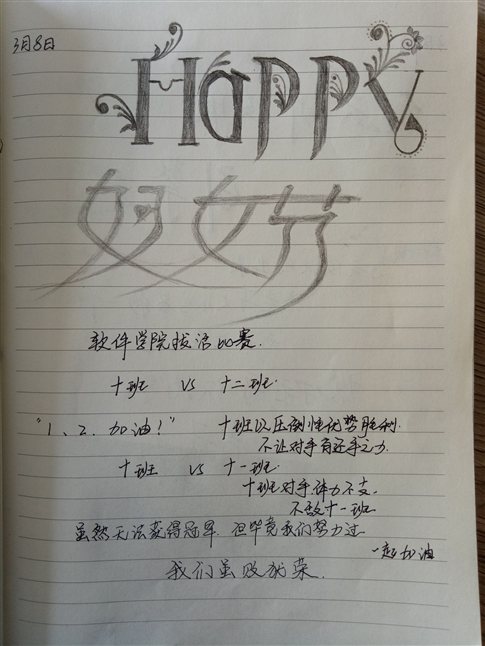 3月8日
Happy
妇女节
软件学院拔河比赛.
十班 VS 十二班.
"1、2. 加油！" 十班以压倒性优势胜利.
不让对手有还手之力.
十班 VS 十一班.
十班对手体力不支.
不敌十一班
虽然无法获得冠军. 但毕竟我们努力过.
一起加油
我们虽败犹荣.